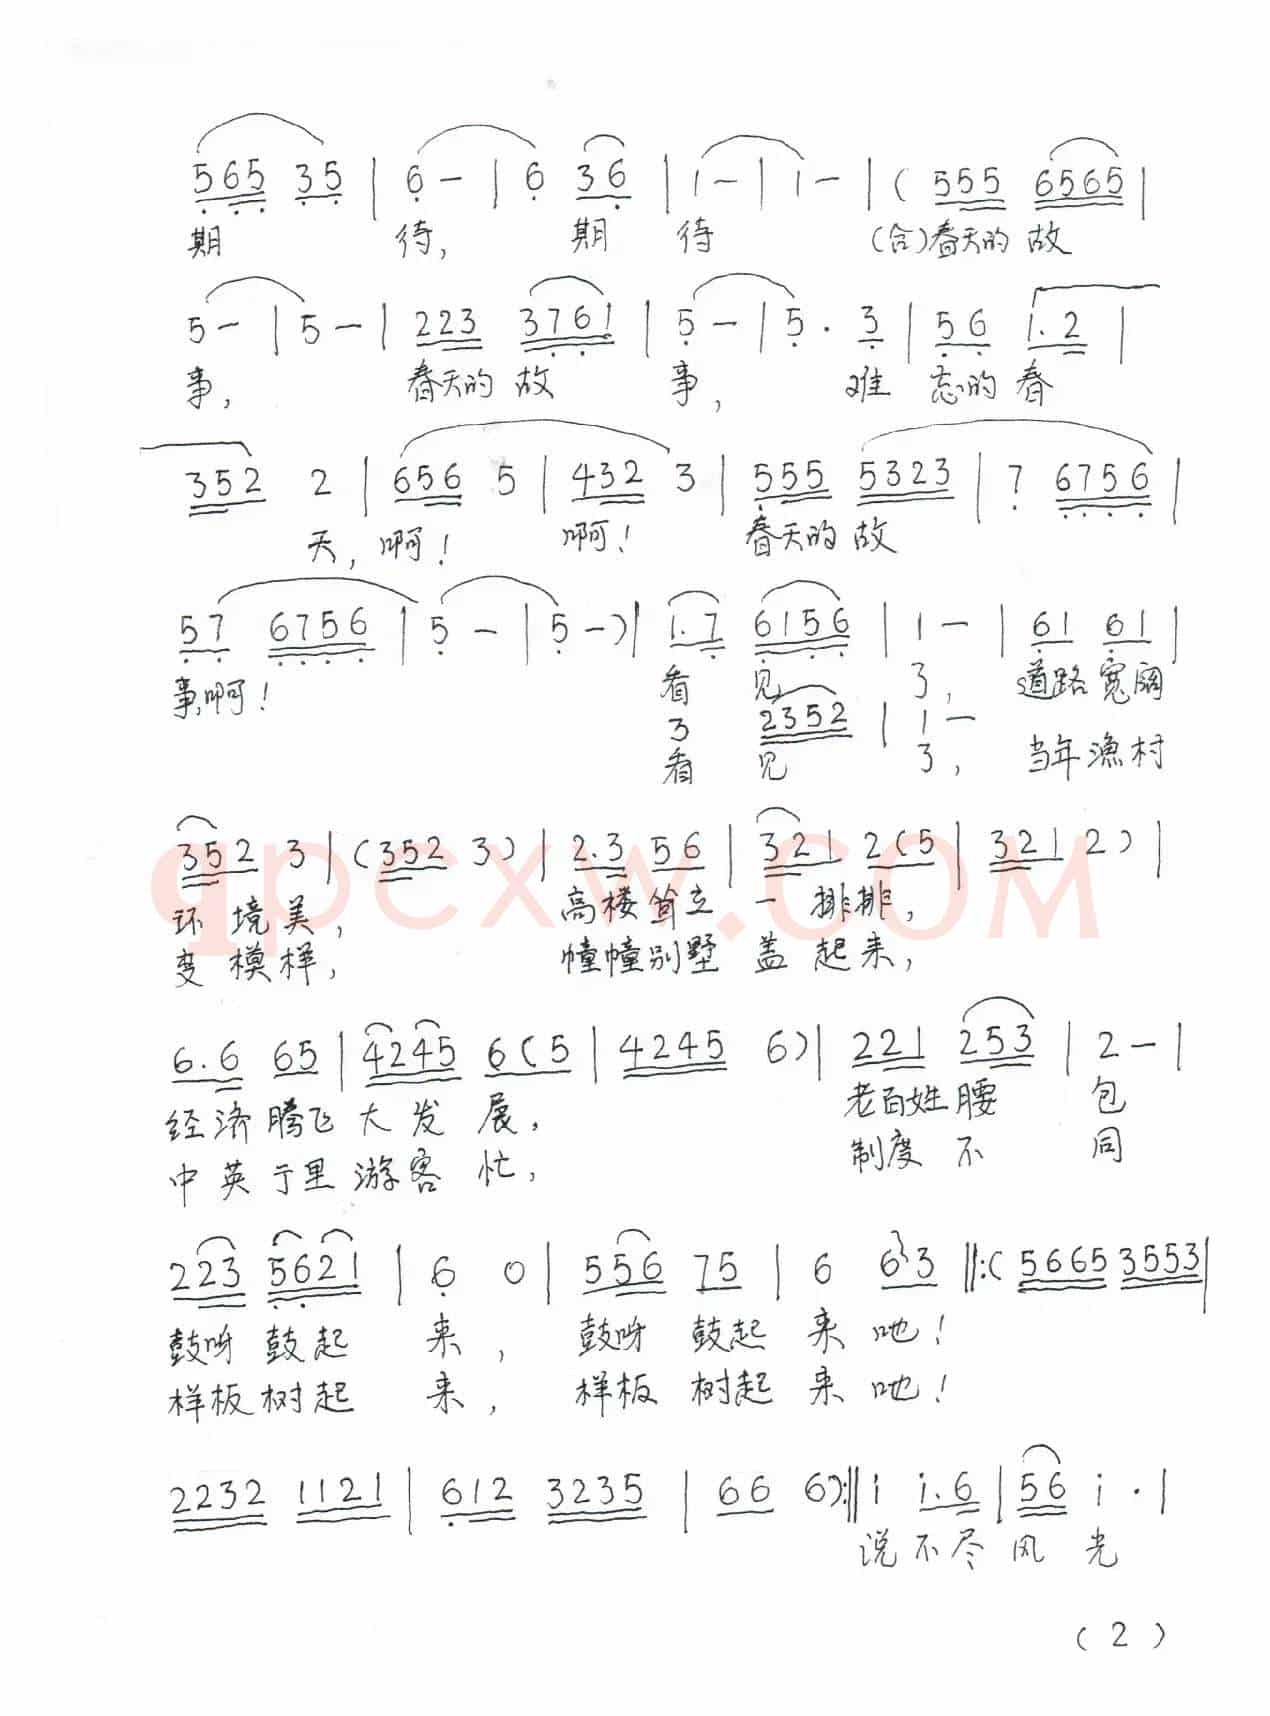 565 35 | 6 - | 6 36 | 1 - | 1 - | ( 555 6565 |
期 待, 期 待 (合)春天的 故
5 - | 5 - | 223 3761 | 5 - | 5 . 3 | 56 1.2 |
事, 春天的 故 事, 难 忘的 春
352 2 | 656 5 | 432 3 | 555 5323 | 7 6756 |
天, 啊! 啊! 春天的 故
57 6756 | 5 - | 5 - ) | 1.7 6156 | 1 - | 61 61 |
事,啊! 看 见 了, 道路 宽阔
3 2352 | 1 -
看 见 了, 当年 渔村
352 3 | (352 3) | 2.3 56 | 321 2(5 | 321 2) |
环 境 美, 高楼 耸立 一 排排,
变 模 样, 幢幢别墅 盖 起 来,
6.6 65 | 4245 6(5 | 4245 6) | 221 253 | 2 - |
经济 腾飞 大 发 展, 老百姓 腰 包
中 英 于里 游 客 忙, 制度 不 同
223 5621 | 6 0 | 556 75 | 6 63 ||:( 5665 3553 |
鼓呀 鼓 起 来, 鼓呀 鼓起 来 吔!
样板 树 起 来, 样板 树起 来 吔!
2232 1121 | 612 3235 | 66 6) :|| i i.6 | 56 i . |
说 不 尽 风 光
(2)
qpcxw.COM